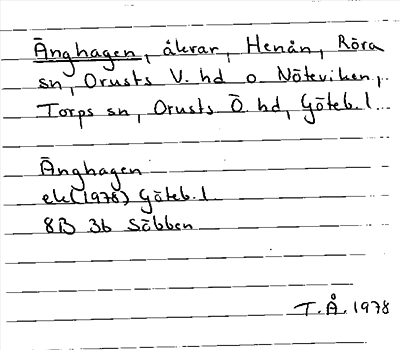 Änghagen, åkrar, Henån, Röra
sn, Orusts V. hd o Nöteviken,
Torps sn, Orusts Ö. hd, Göteb. l.
Änghagen
ek (1978) Göteb. l
8B 3b Säbben
T. Å. 1978